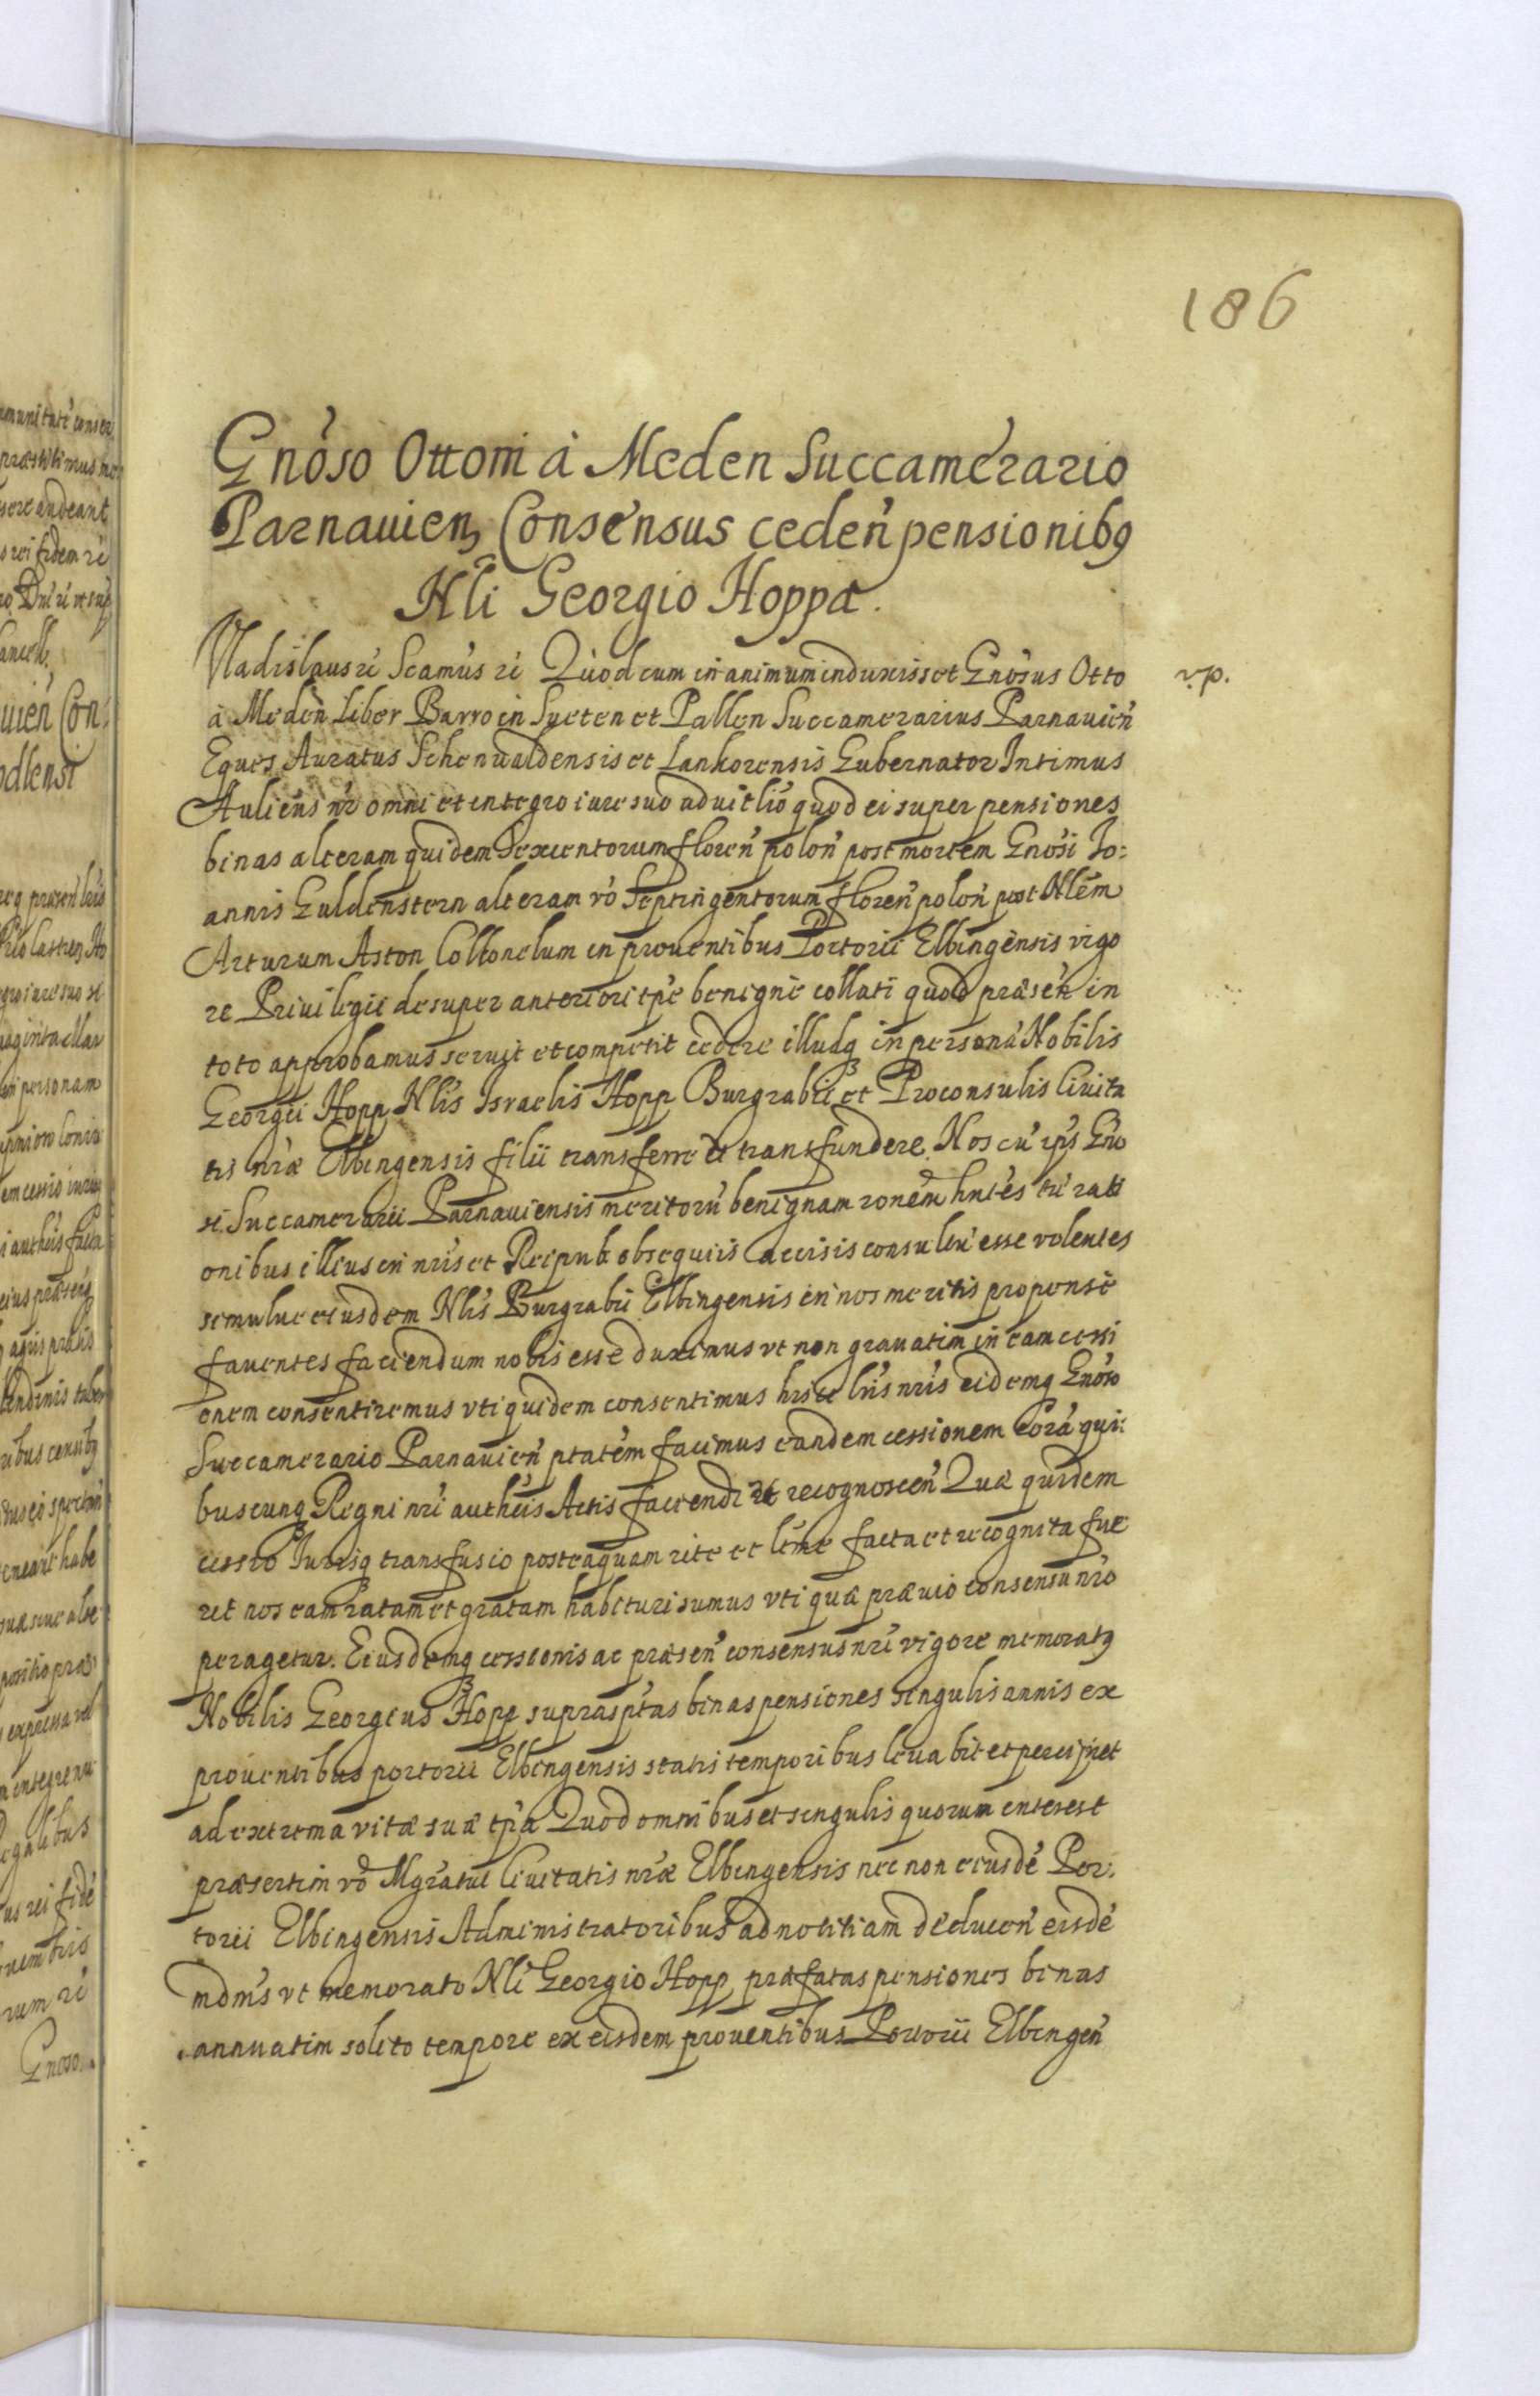 186
Gnoso Ottoni à Meden Succamerario
Parnavien Consensus ceden pensionibq
Nli Georgio Hoppa.
Vladislaus rc Scamus rc Quod cum in animum induxisset Gnosus Otto
v.p.
à Meden Liber Barro in Sueten et Pallen Succamerarius Parnavien
Eques Auratus Schenwaldensis et Lankorensis Gubernator Intimus
Auliens nr omni et integro iure suo advitlio quod ei super pensiones
binas alteram quidem Sexcentorum floren polon post mortem Gnosi Jo:
annis Guldenstern alteram vo Septingentorum floren polon post Nlem
Arturum Aston Collonelum in proventibus Portorii Elbingensis vigo
re Privilegii desuper anteriori tpe benigne collati quod praesen in
toto approbamus seruit et competit cedere illudq in persona Nobilis
Georgii Hopp Nlis Israelis Hopp Burgrabii et Proconsulis Civita
tis nrae Elbingensis filii transferre et transfundere. Nos cu ips Gno
si Succamerarii Parnaviensis meritoru benignam ronem hntes tu rati
onibus illius in nris et Reipub obsequiis accisis consultu esse volentes
simulue eiusdem Nlis Burgrabii Elbingensis in nos meritis propense
faventes faciendum nobis esse duximus vt non gravatim in eam cessi
onem consentiremus vti quidem consentimus hisce lris nris eidemq Gnoso
Succamerario Parnavien ptatem facimus eandem cessionem cora qui:
buscunq Regni nri autheis Actis faciendi et recognoscen Quae quidem
cessio Jurisq transfusio posteaquam rite et ltme facta et recognita fue
rit nos eam ratam et gratam habituri sumus vti quae praevio consensu nro
peragetur. Eiusdemq cessionis ac praesen consensus nri vigore memoratq
Nobilis Georgius Hopp suprasptas binas pensiones singulis annis ex
proventibus portorii Elbingensis statis temporibus levabit et percipiet
ad extrema vitae suae tpa Quod omnibus et singulis quorum interest
praesertim vo Mgratui Civitatis nrae Elbingensis nec non eiusde Por:
torii Elbingensis Administratoribus ad notitiam deducen eisde
mdms vt memorato Nli Georgio Hopp praefatas pensiones binas
annuatim solito tempore ex eisdem proventibus Portorii Elbingen